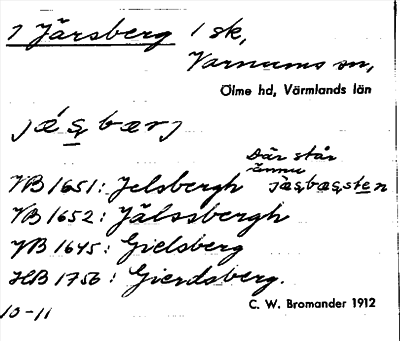 1 Järsberg 1 sk,
Varnums sn,
Ölme hd, Värmlands län
jǽs̱bærj
Där står
ännu
VB 1651: Jelsbergh jæsbæssten
VB 1652: Jälssbergh
VB 1645: Gielsberg
HB 1756: Gierdsberg.
10-11
C. W. Bromander 1912